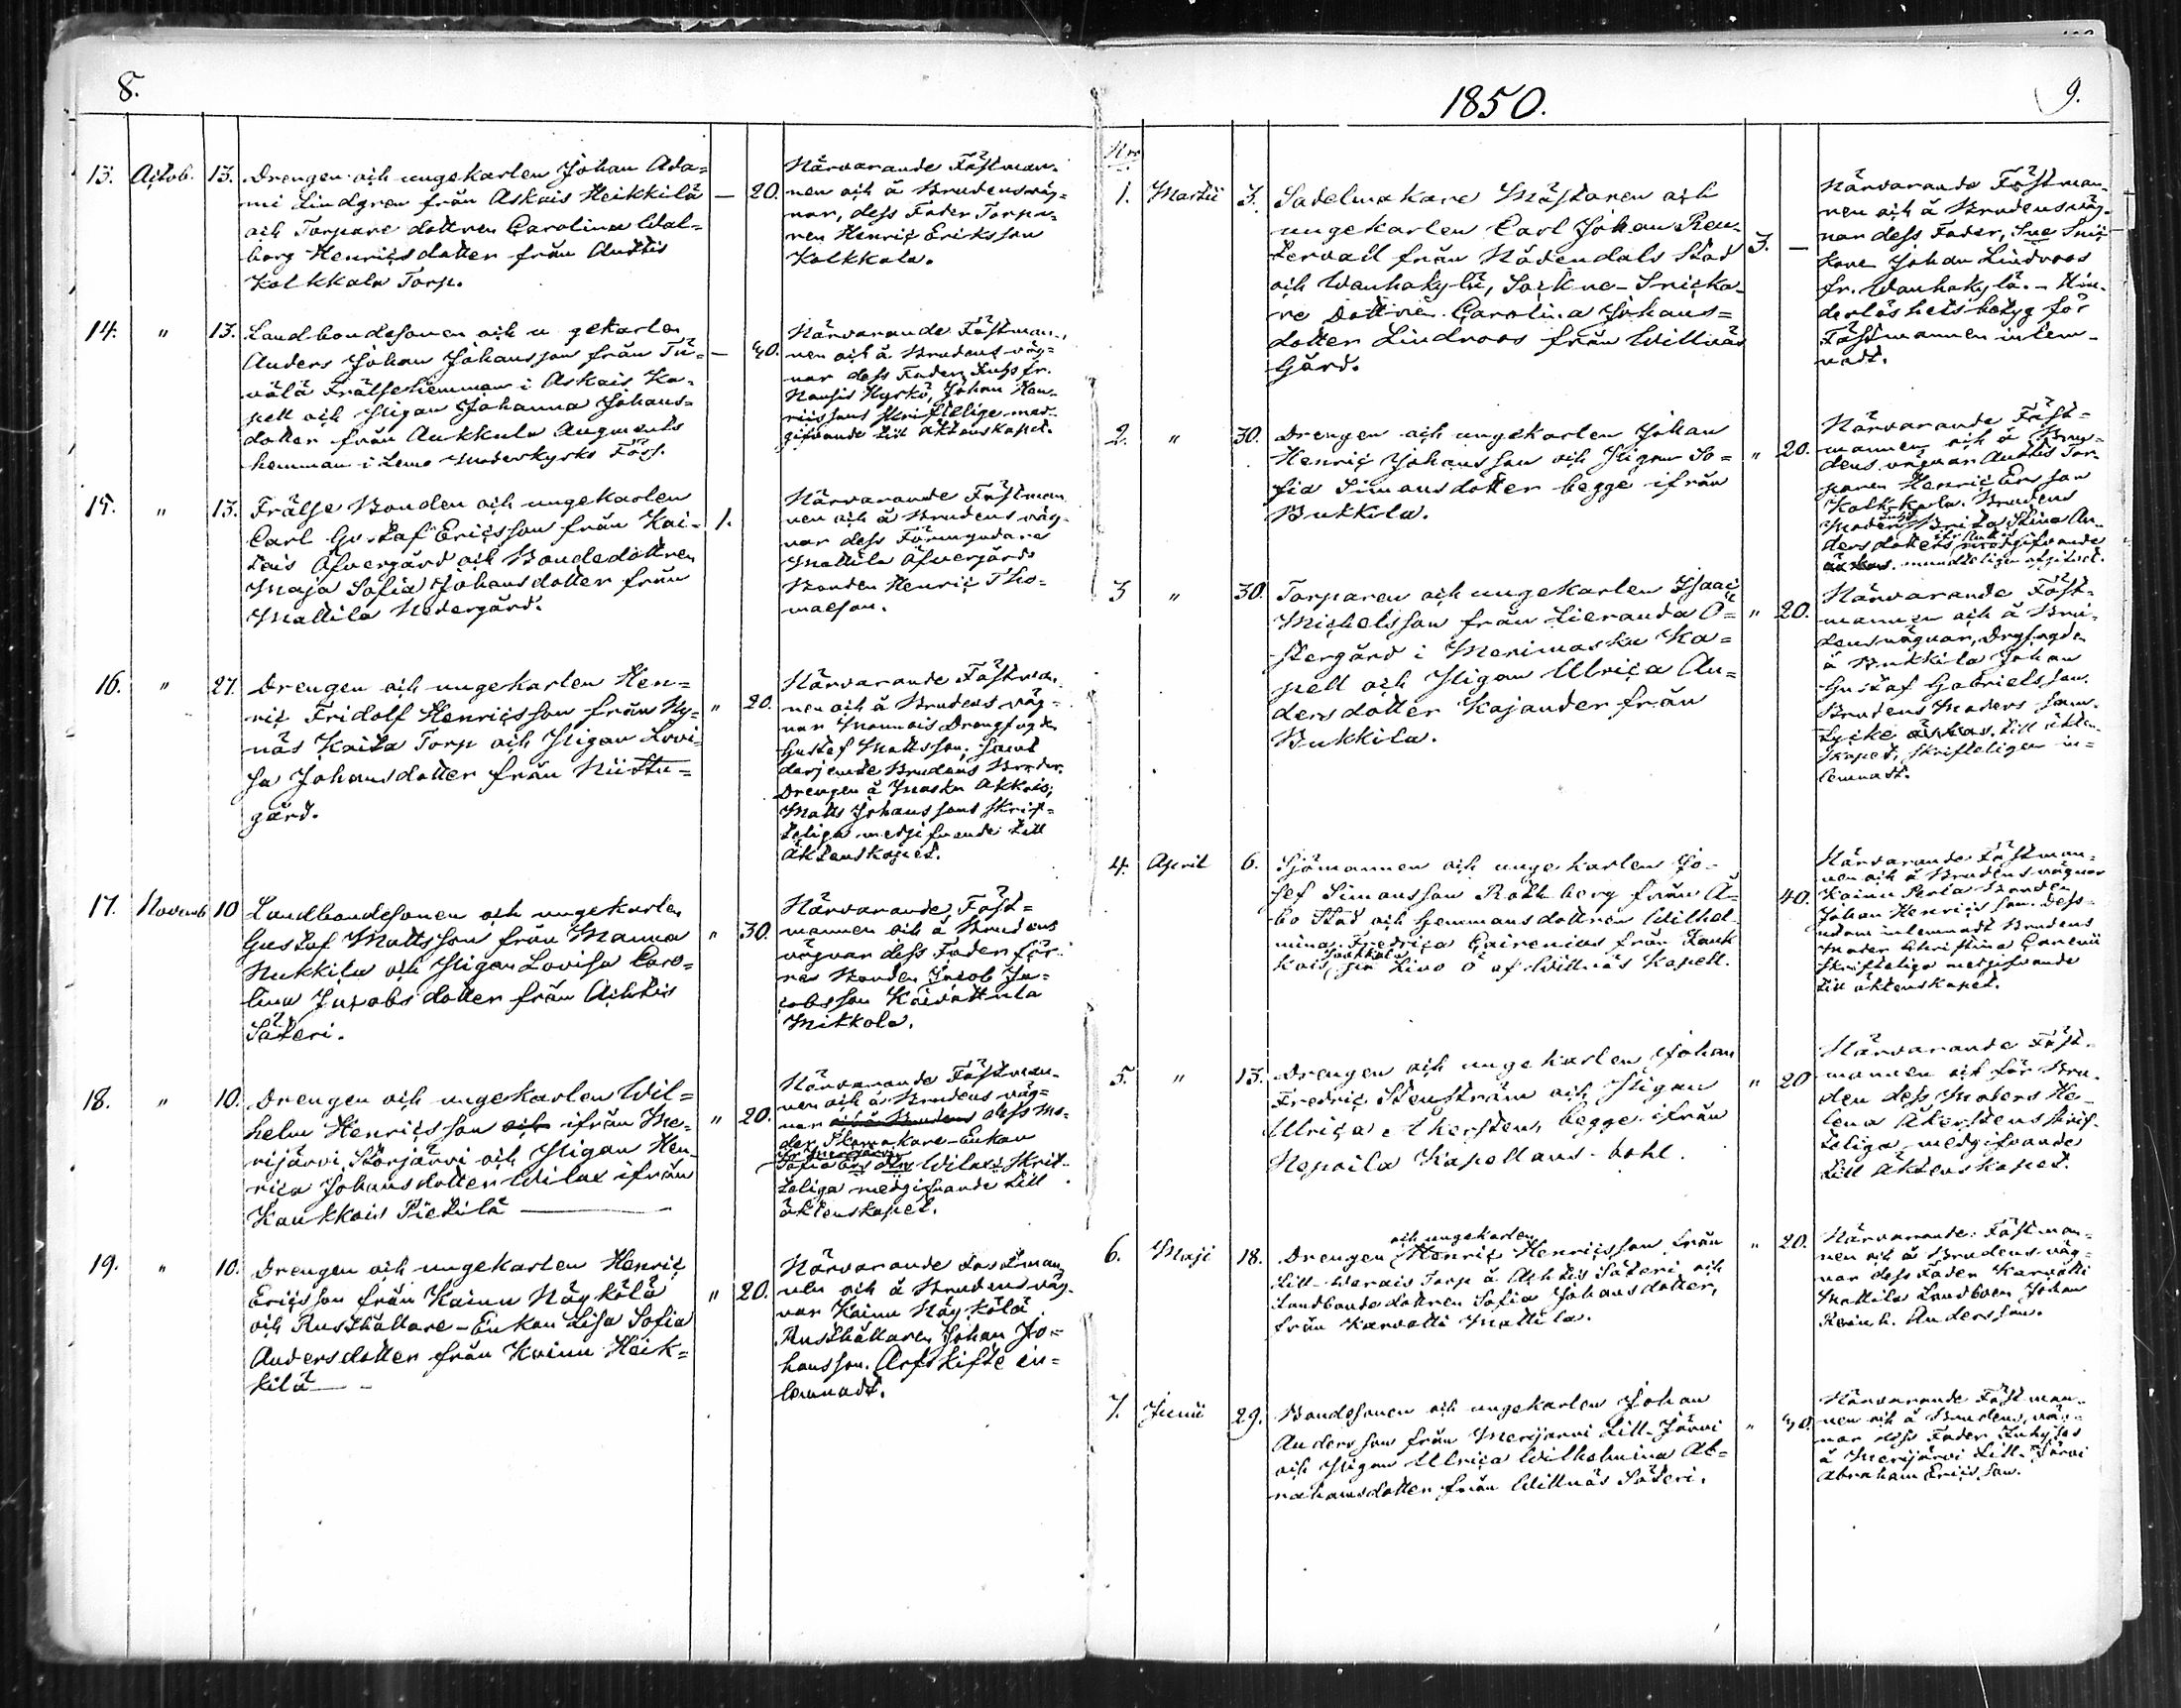 8.
13. Octob. 13. Drengen och ungekarlen Johan Ada=
mi Lindgren från Askais Heikkilä
och Torpare dottren Carolina Wal=
borg Henricsdotter från Auttis
Kolkkala Torp.
— 20.
Närvarande Fästman=
nen och å Brudens väg=
nar, dess Fader Torpa=
ren Henric Eriksson
Kolkkala.
14. " 13. Landbondesonen och u gekarlen
Anders Johan Johansson från Ti=
välä Frälsehemman i Askais Ka=
pell och Pigan Johanna Johans=
dotter från Aukkula Augments
hemman i Lemo Moderkyrko Förs.
— 40.
Närvarande Fästman=
nen och å Brudens väg=
nar dess Fader, Inhs fr.
Nousis Kyrkö, Johan Hen=
ricssons skriftelige med=
gifvande till äktenskapet.
15. " 13. Frälse Bonden och ungekarlen
Carl Gustaf Ericsson från Kai=
tais Öfvergård och Bondedottren
Maja Sofia Johansdotter från
Mattila Nedergård.
1.
Närvarande Fästman
nen och å Brudens väg=
nar dess Förmyndare
Mattila Öfvergårds
Bonden Henric Tho=
maeson.
16. " 27. Drengen och ungekarlen Hen=
ric Fridolf Henricsson från Ny=
näs Kaita Torp och Pigan Lovi=
sa Johansdotter från Niittu=
gård.
" 20.
Närvarande Fästman
nen och å Brudens väg=
nar Monnois Drengfogde
Gustaf Mattsson; samt
derjemte Brudens Broder,
Drengen å Masku Akkois,
Matts Johanssons skrif=
teliga medgifvande till
äktenskapet.
17. Novemb 10 Landbondesonen och ungekarlen
Gustaf Mattsson från Manna
Nukkila och Pigan Lovisa Caro=
lina Jacobsdotter från Achtis
Säteri.
" 30.
Närvarande Fäst=
mannen och å Brudens
vägnar dess Fader för=
re Bonden Jacob Ja=
cobsson Kaivattula
Mikkola.
18. " 10. Drengen och ungekarlen Wil=
helm Henricsson och ifrån Me=
rijärvi Storjärvi och Pigan Hen=
rica Johansdotter Wilax ifrån
Kaukkois Pietilä —
" 20.
Närvarande Fästman=
nen och å Brudens väg=
nar och å Brudens dess Mo=
der Skomakare-Enkan
ifr. Merijärvi
Sofia Ers dtr Wilax's skrif=
teliga medgifvande till
äktenskapet.
19. " 10. Drengen och ungekarlen Henric
Ericsson från Kainu Näykölä
och Rusthållare-Enkan Lisa Sofia
Andersdotter från Kainu Heik=
kilä —
" 20.
Närvarande Fästman
nen och å Brudens väg=
nar Kainu Näykölä
Rusthållaren Johan Jo=
hansson. Arfskifte in=
lemnadt.
1850.
9.
Nro
1. Martii 3. Sadelmakare Mästaren och
ungekarlen Carl Johan Ren=
tervall från Nådendals Stad
och Wanhakylä, Sockne-Snicka=
re Dottren Carolina Johans=
dotter Lindroos från Willnäs
Gård.
3. —
Närvarande Fästman=
nen och å Brudens väg=
nar dess Fader, Sne Snic
karen Johan Lindroos
fr. Wanhakylä. - Hin=
derlöshetsbetyg för
Fästmannen inlem=
nadt.
2. " 30. Drengen och ungekarlen Johan
Henric Johansson och Pigan So=
fia Simonsdotter begge ifrån
Bukkila.
" 20.
Närvarande Fäst=
mannen och å Bru=
dens vägnar Auttis Tor
paren Henric Ersson
Kolkkala. Brudens
Moder Brita Stina An=
dersdotters medgifvande
mundteligen afgifvet.
3 " 30. Torparen och ungekarlen Isaac
Michelsson från Lieranda Ö=
stergård i Merimasku Ka=
pell och Pigan Ulrica An=
dersdotter Kajander från
Bukkila.
" 20.
Närvarande Fäst=
mannen och å Bru=
dens vägnar, Drgfogden
å Bukkila Johan
Gustaf Gabrielsson.
Brudens Moders sam=
tycke till äkten
skapet, skrifteligen in=
lemnadt.
4. April 6. Sjömannen och ungekarlen Jo=
sef Simonsson Rothberg från Å=
bo Stad och hemmansdottren Wilhel=
mina Fredrica Cairenius från Kauk
kois Livo ö af Willnäs Kapell.
40.
Närvarande Fästman=
nen och å Brudens vägnar
Kainu Perta Bonden
Johan Henricsson. Dess=
utom inlemnadt Brudens
Moder Christina Carenii
skrifteliga medgifvande
till äktenskapet.
5. " 13. Drengen och ungekarlen Johan
Fredric Stenström och Pigan
Ulrica Åkersten, begge ifrån
Nepoila Kapellans-bohl.
" 20
Närvarande Fäst=
mannen och för Bru=
den dess Moders He=
lena Åkerstens skrif=
teliga medgifvande
till äktenskapet.
6. Maji 18. och ungekarlen
Drengen Henric Henricsson från
Lill-Werais Torp å Achtis Säteri och
Landbondedottren Sofia Johansdotter,
från Karvatti Mattila.
" 20.
Närvarande: Fästman=
nen och å Brudens väg=
nar dess Fader Karvatti
Mattila Landboen Johan
Reinh. Andersson.
7. Junii 29. Bondesonen och ungekarlen Johan
Andersson från Merijärvi Lill-Järvi
och Pigan Ulrica Wilhelmina Ab=
rahamsdotter från Willnäs Säteri.
" 40.
Närvarande Fästman=
nen och å Brudens väg=
nar dess Fader Inhyses
å Merijärvi Lill-Järvi
Abraham Ericsson.